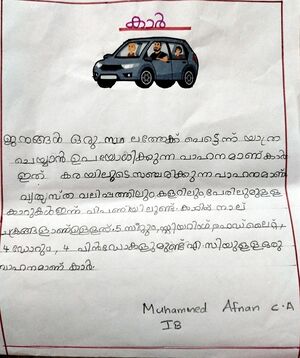 കാർ
ജനങ്ങൾ ഒരു സ്ഥലത്തേക്ക് പെട്ടെന്ന് യാത്ര
ചെയ്യാൻ ഉപയോഗിക്കുന്ന വാഹനമാണ് കാർ
ഇത് കരയിലൂടെ സഞ്ചരിക്കുന്ന വാഹനമാണ്
വ്യത്യസ്ത വലിപ്പത്തിലും കളറിലും പേരിലുമുള്ള
കാറുകൾ ഇന്ന് വിപണിയിലുണ്ട്. കാറിന് നാല്
ചക്രങ്ങളാണുള്ളത്. 5 സീറ്റും, സ്റ്റിയറിംഗ്, ഹെഡ് ലൈറ്റ്,
4 ഡോറും, 4 വിൻഡോകളുമുണ്ട് എ.സിയുള്ള ഒരു
വാഹനമാണ് കാർ.
Muhammed Afnan C.A
IB